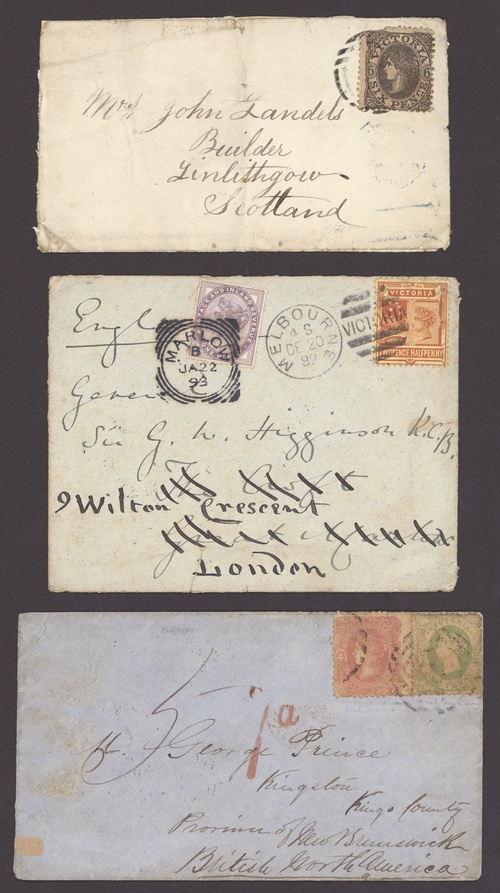 VICTORIA
SIX PENCE
Mrs John Landels
Builder
Linlithgow
Scotland
VICTORIA
TWOPENCE HALFPENNY
MELBOURNE
4 S
DE 20
92
VICTORIA
MARLOW
B
JA 22
93
Sir G. W. Higginson K.C.B.
9 Wilton Crescent
London
George Prince
Kingston
Kings County
Province of New Brunswick
British North America